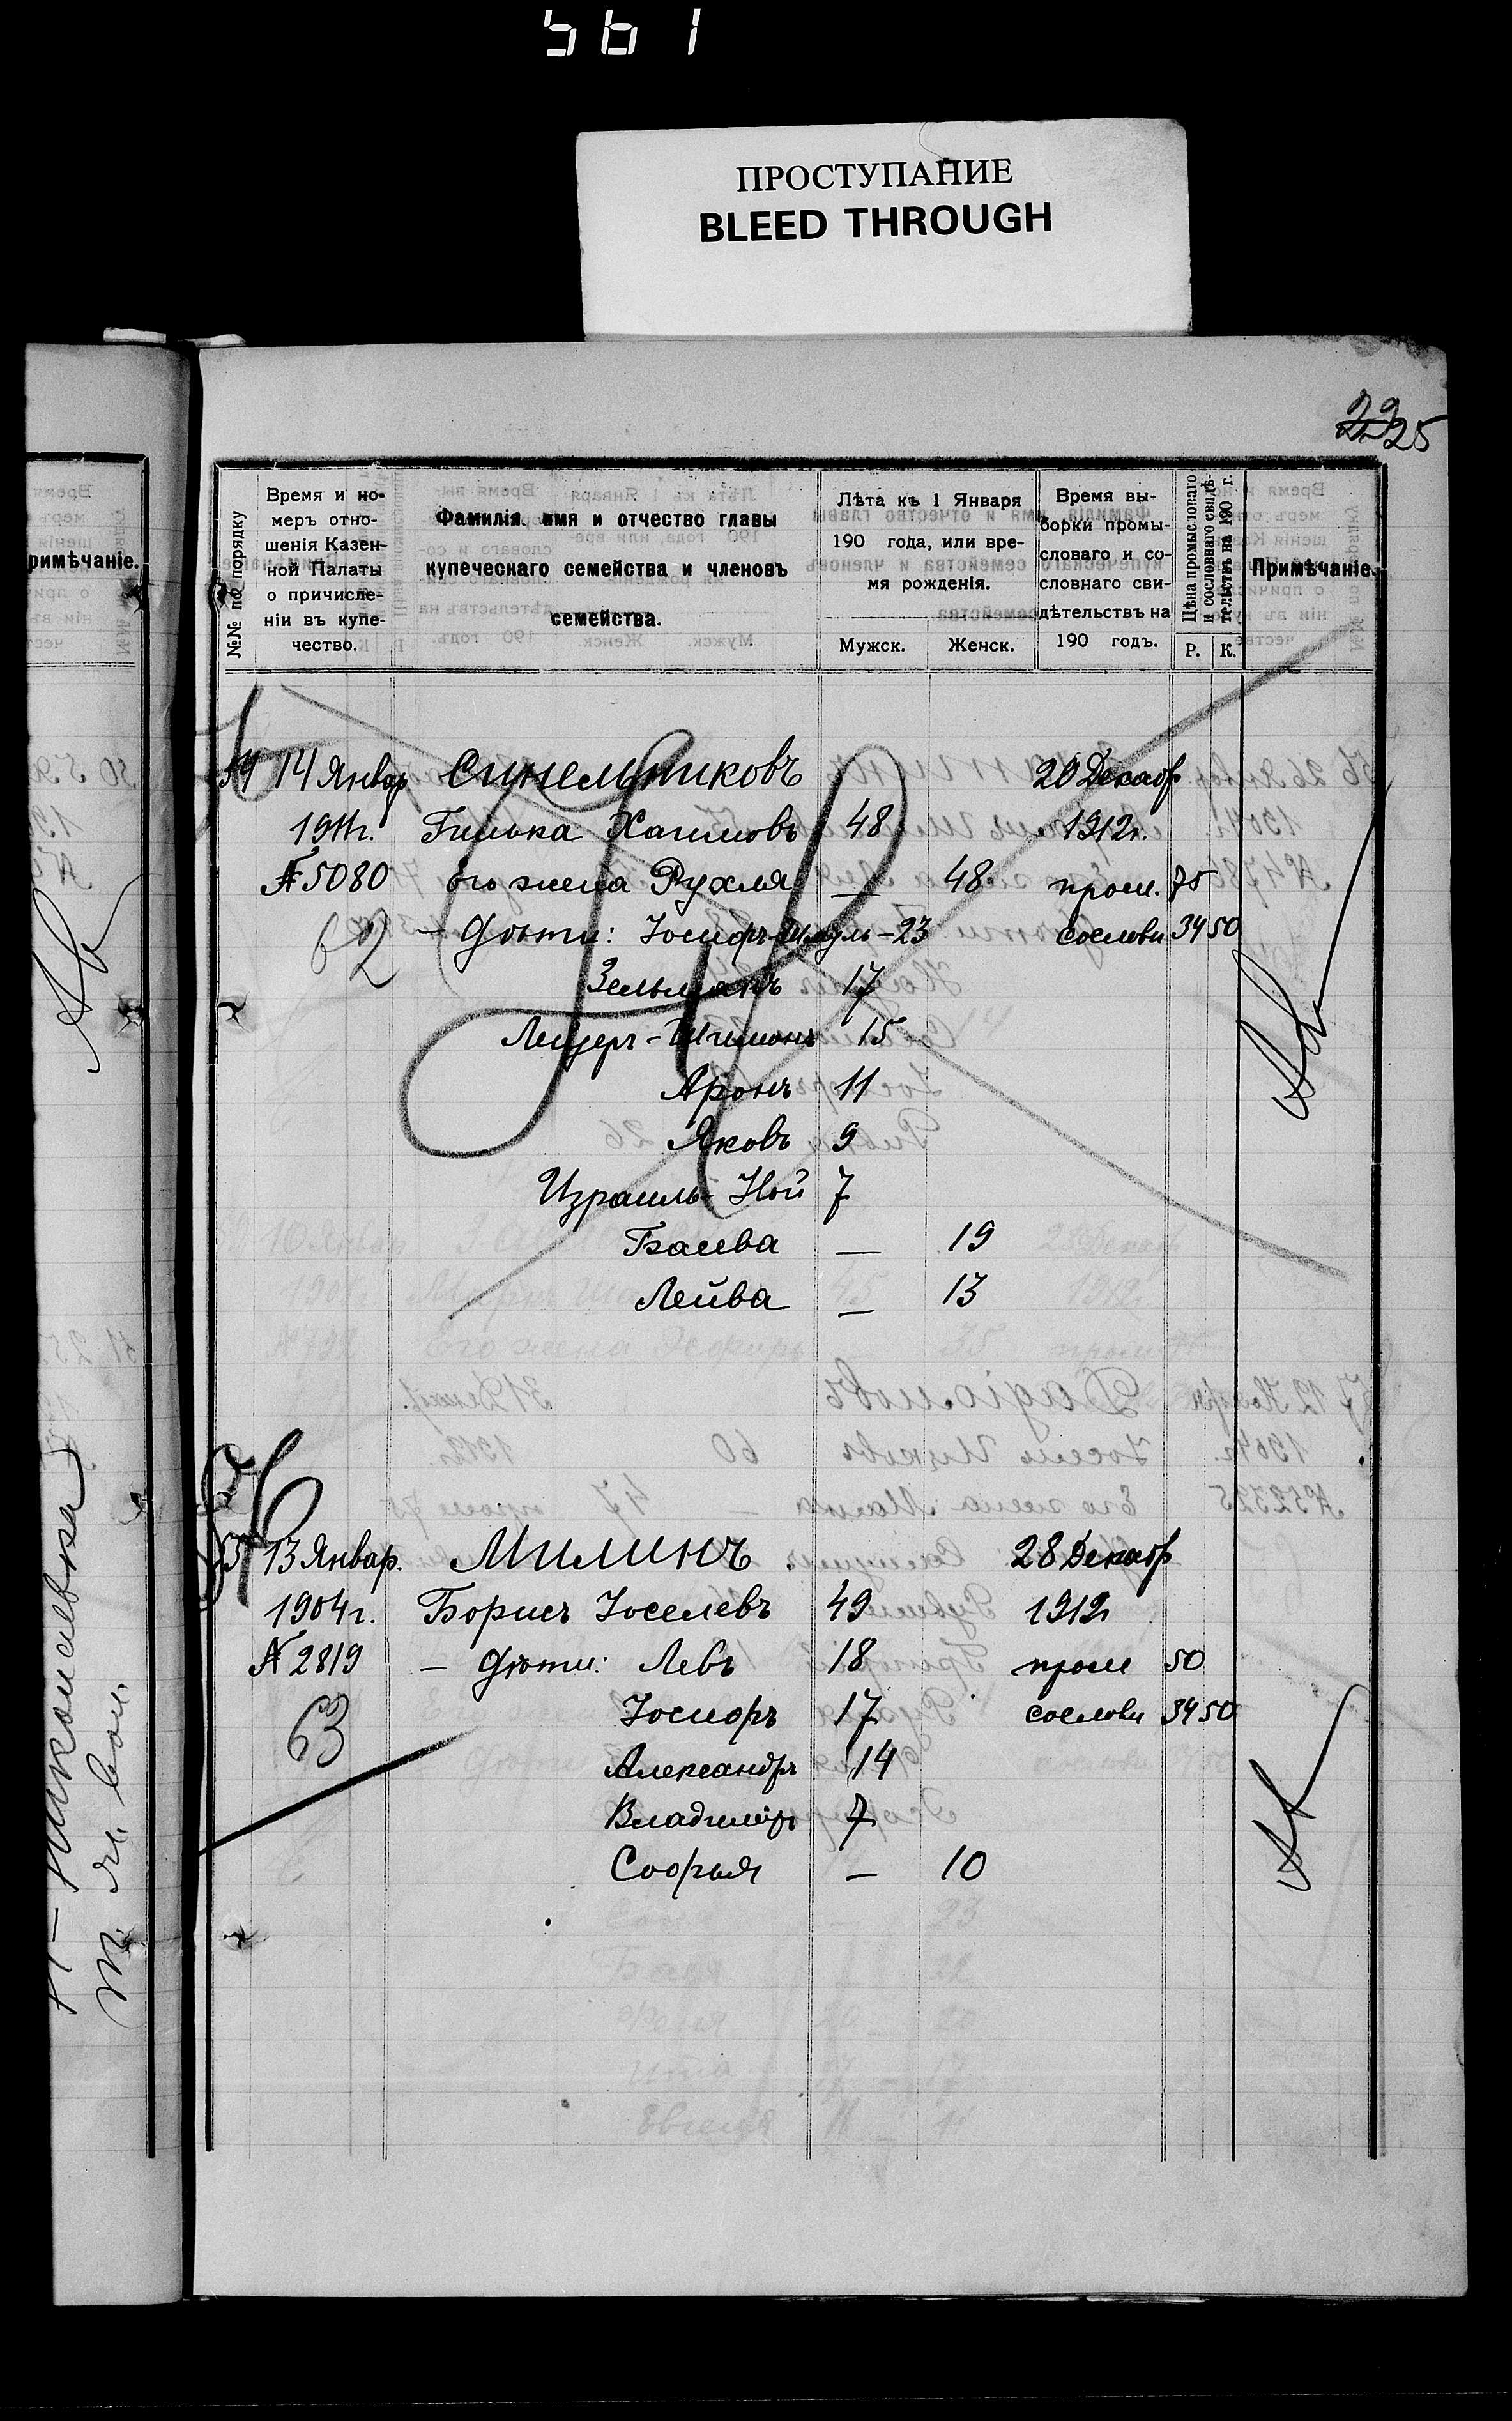 561
ПРОСТУПАНИЕ
BLEED THROUGH
29 25
римѣчаніе.
№№ по порядку
Время и но-
меръ отно-
шенія Казен-
ной Палаты
о причисле-
ніи въ купе-
чество.
Фамилія, имя и отчество главы
купеческаго семейства и членовъ
семейства.
Лѣта къ 1 Января
190 года, или вре-
мя рожденія.
Мужск. Женск.
Время вы-
борки промы-
словаго и со-
словнаго сви-
дѣтельствъ на
190 годъ.
Цѣна промысловаго
и сословнаго свидѣ-
тельствъ на 190 г.
Р. К.
Примѣчаніе.
54 14 Январ Синельниковъ 20 Декабр
1911г. Гилька Хаимовъ 48 1912г.
№5080 Его жена Рухля — 48 пром. 75
62 — Дѣти: Іосифъ-Шмуль — 23 сословн 34 50
Зельманъ 17
Лейзеръ-Шимонъ 15
Аронъ 11
Яковъ 9
Израиль-Ной 7
Башева — 19
Лейва — 13
55 13 Январ. Милинъ 28 Декабр
1904г. Борисъ Іоселевъ 49 1912г
№ 2819 — Дѣти: Левъ 18 пром 50
63 Іосифъ 17 сословн 34 50
Александръ 14
Владиміръ 7
Софья — 10